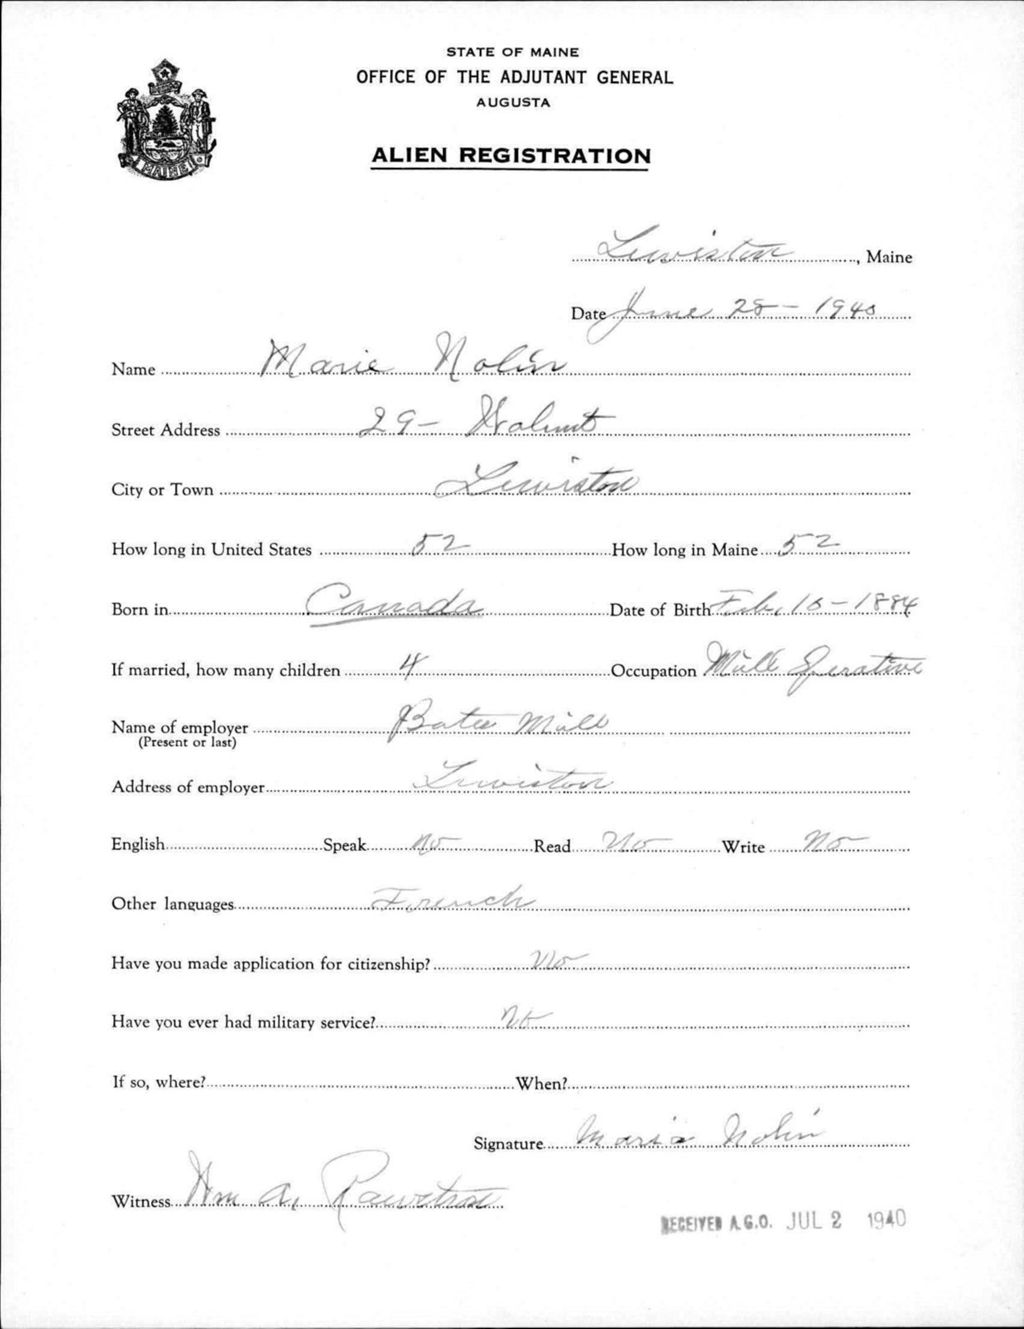 STATE OF MAINE
OFFICE OF THE ADJUTANT GENERAL
AUGUSTA
ALIEN REGISTRATION
MAINE
Lewiston, Maine
Date June 28 - 1940
Name Marie Nolin
Street Address 29 - Walnut
City or Town Lewiston
How long in United States 52 How long in Maine 52
Born in Canada Date of Birth Feb, 15 - 1884
If married, how many children 4 Occupation Mill Operative
Name of employer Bates Mill
(Present or last)
Address of employer Lewiston
English Speak No Read No Write No
Other languages French
Have you made application for citizenship? No
Have you ever had military service? No
If so, where? When?
Signature Maria Nolin
Witness Wm A.
RECEIVED A.G.O. JUL 2 1940